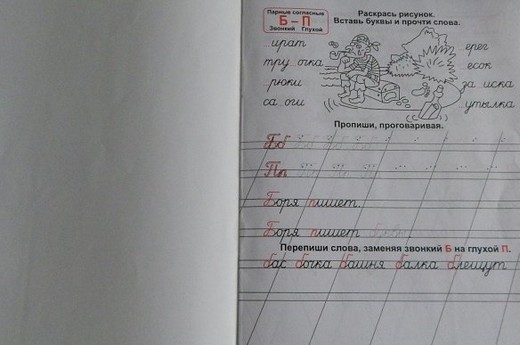 Парные согласные
Б – П
Звонкий Глухой
Раскрась рисунок.
Вставь буквы и прочти слова.
ират ерег
тру очка есок
рюки за иска
са оги утылка
Пропиши, проговаривая.
Бб Бб Бб Бб
Пп Пп Пп Пп
Боря пишет.
Боря пишет буквы
Перепиши слова, заменяя звонкий Б на глухой П.
бас бочка башня балка брешут